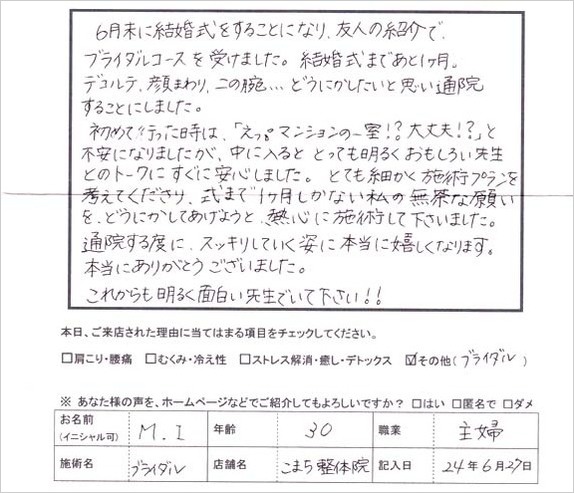 6月末に結婚式をすることになり、友人の紹介で、
ブライダルコースを受けました。結婚式まであと1ヶ月。
デコルテ、顔まわり、二の腕…どうにかしたいと思い通院
することにしました。
初めて行った時は、「えっ。マンションの一室!?大丈夫!?」と
不安になりましたが、中に入ると とっても明るく おもしろい先生
とのトークに すぐに安心しました。とても細かく施術プランを
考えてくださり、式まで1ヶ月しかない私の無茶な願い
を、どうにかしてあげようと、熱心に施術して下さいました。
通院する度に、スッキリしていく姿に本当に嬉しくなります。
本当にありがとうございました。
これからも明るく面白い先生でいて下さい!!
本日、ご来店された理由に当てはまる項目をチェックしてください。
□肩こり・腰痛 □むくみ・冷え性 □ストレス解消・癒し・デトックス ☑その他(ブライダル)
※ あなた様の声を、ホームページなどでご紹介してもよろしいですか? □はい □匿名で □ダメ
お名前(イニシャル可) M.I 年齢 30 職業 主婦
施術名 ブライダル 店舗名 こまち整体院 記入日 24年6月27日